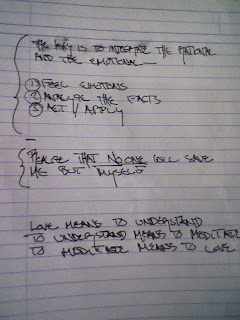 THE KEY IS TO INTEGRATE THE RATIONAL
AND THE EMOTIONAL
① FEEL EMOTIONS
② ANALYZE THE FACTS
③ ACT / APPLY
REALIZE THAT NO ONE WILL SAVE
ME BUT MYSELF
LOVE MEANS TO UNDERSTAND
TO UNDERSTAND MEANS TO MEDITATE
TO MEDITATE MEANS TO LOVE